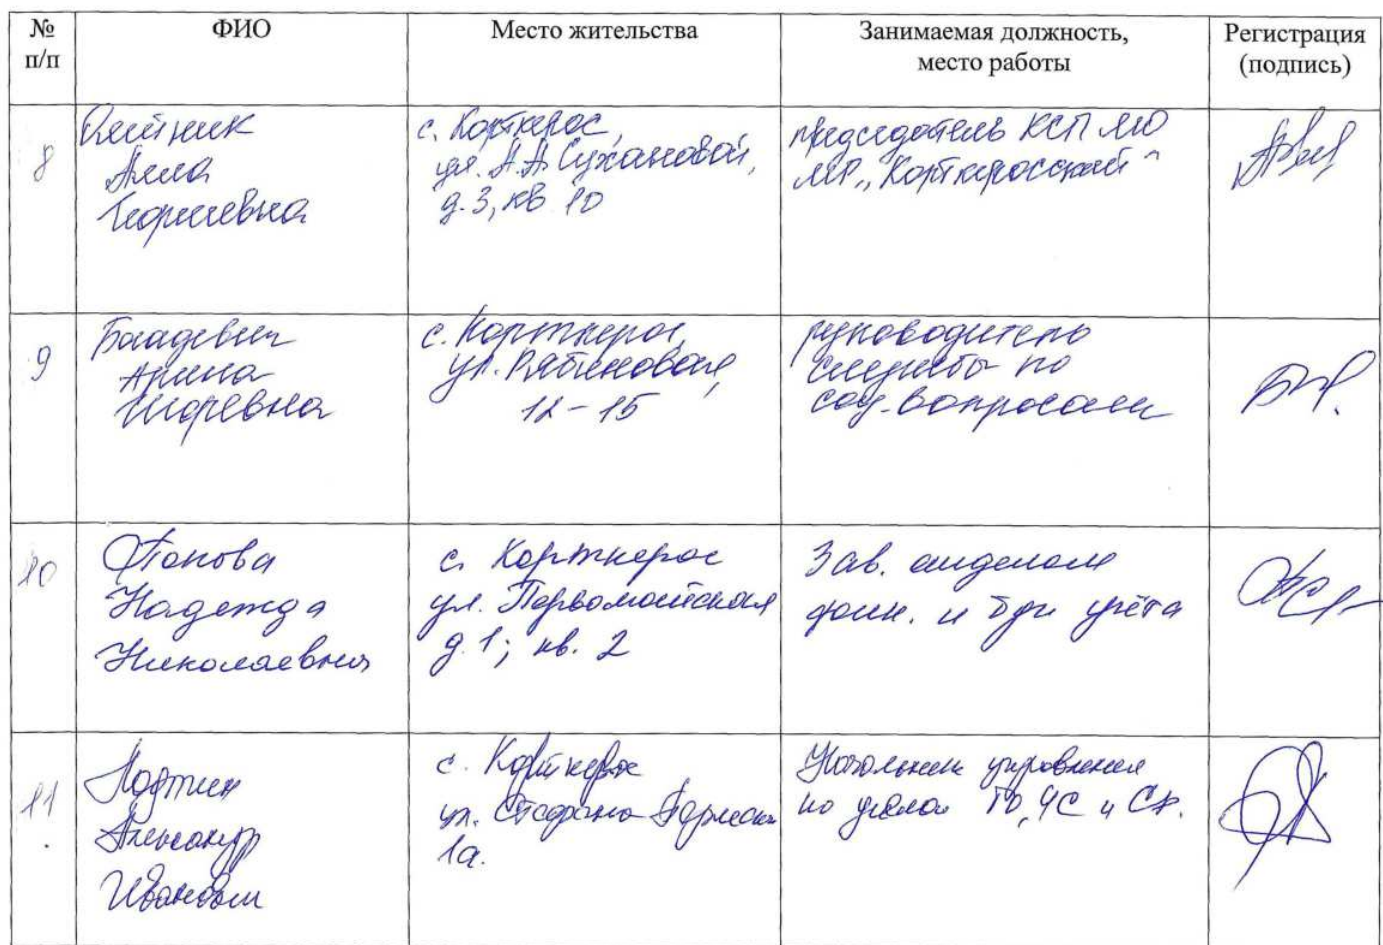 № п/п
ФИО
Место жительства
Занимаемая должность, место работы
Регистрация (подпись)
8
Алла
с. Корткерос,
ул. А.А. Сухановой,
д. 3, кв 10
председатель КСП МО
МР „Корткеросский"
9
Арина
Игоревна
с. Корткерос,
ул. Рябиновая,
12-15
руководитель
службы по
соц. вопросам
10
Попова
Надежда
Николаевна
с. Корткерос
ул. Первомайская
д. 1; кв. 2
Зав. отделом
фин. и бух учёта
11
Александр
Иванович
с. Корткерос
ул. Стефана Пермского
1а.
Начальник управления
по делам ГО, ЧС и